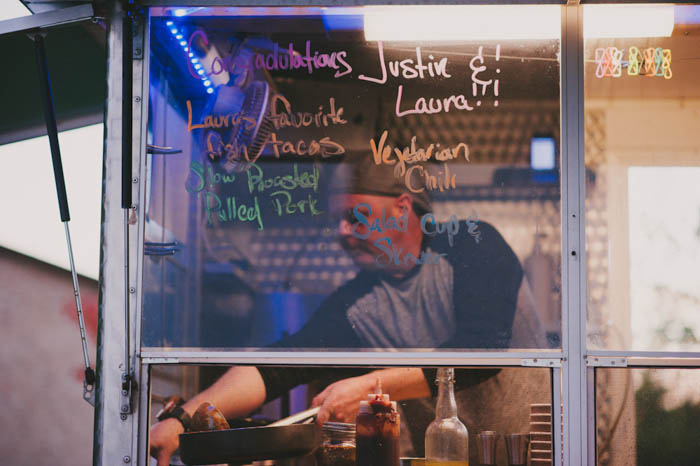 Congradulations Justin &!
Laura!!
Laura's favorite
fish tacos
Slow Roasted
Pulled Pork
Vegetarian
Chili
Salad Cup &